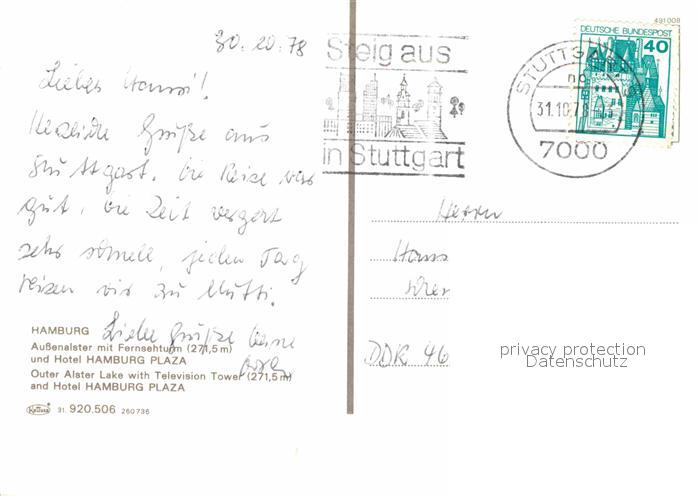 491008
30.10.78
Steig aus
in Stuttgart
DEUTSCHE BUNDESPOST
40
STUTTGART
31.10.78
7000
Liebes Hansi!
Herzliche Grüße aus
Stuttgart. Die Reise war
gut, die Zeit vergeht
sehr schnell, jeden Tag
reisen wir zu Mutti.
Liebe Grüße Deine
Herrn
Hans
DDR 46
privacy protection
Datenschutz
HAMBURG
Außenalster mit Fernsehturm (271,5 m)
und Hotel HAMBURG PLAZA
Outer Alster Lake with Television Tower (271,5 m)
and Hotel HAMBURG PLAZA
Krüger 31. 920.506 260736